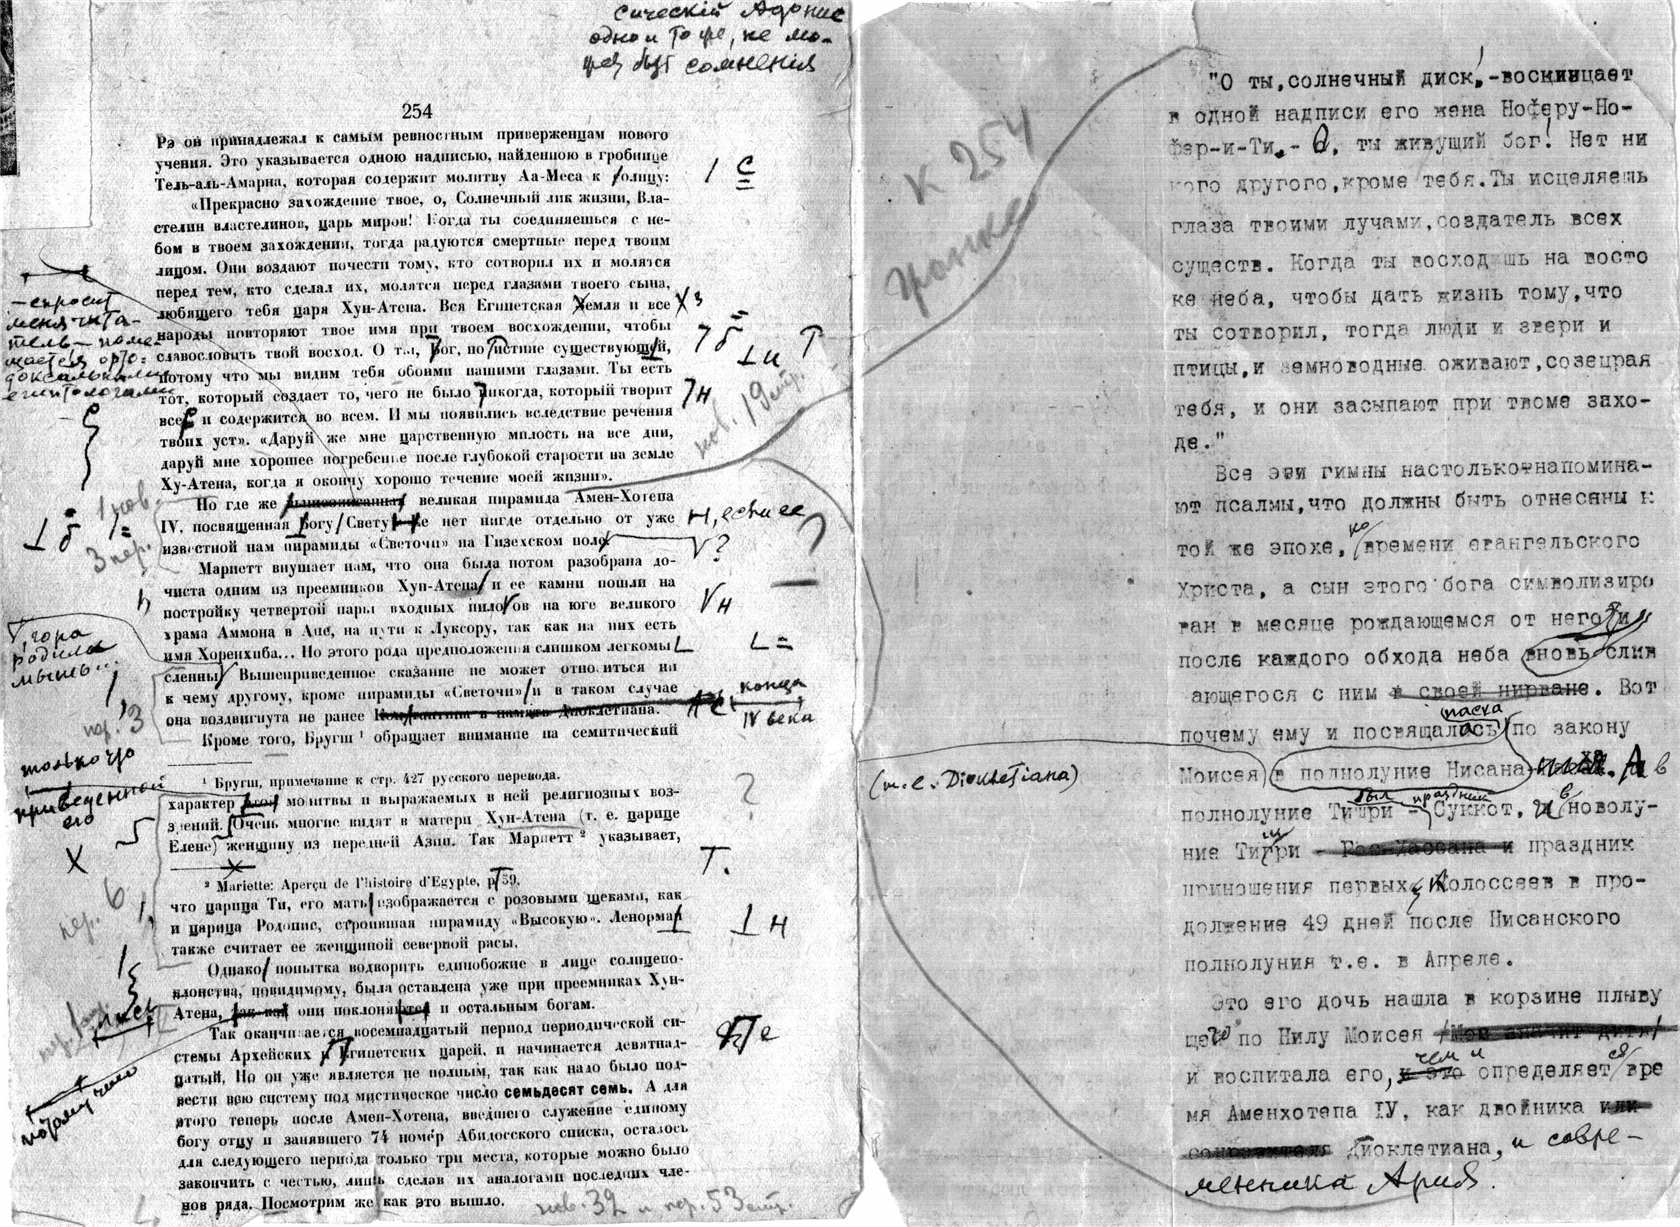 сический Адонис
одно и то же, не мо-
жет быть сомнения
254
Рэ он принадлежал к самым ревностным приверженцам нового
учения. Это указывается одною надписью, найденною в гробнице
Тель-аль-Амарна, которая содержит молитву Аа-Меса к солнцу:
«Прекрасно захождение твое, о, Солнечный лик жизни, Вла-
стелин властелинов, царь миров! Когда ты соединяешься с не-
бом в твоем захождении, тогда радуются смертные перед твоим
лицом. Они воздают почести тому, кто сотворил их и молятся
перед тем, кто сделал их, молятся перед глазами твоего сына,
любящего тебя царя Хун-Атена. Вся Египетская Земля и все
народы повторяют твое имя при твоем восхождении, чтобы
славословить твой восход. О ты, Бог, по истине существующий,
потому что мы видим тебя обоими нашими глазами. Ты есть
тот, который создает то, чего не было никогда, который творит
все и содержится во всем. И мы появились вследствие речения
твоих уст». «Даруй же мне царственную милость на все дни,
даруй мне хорошее погребение после глубокой старости на земле
Ху-Атена, когда я окончу хорошо течение моей жизни».
Но где же великая пирамида Амен-Хотепа
IV, посвященная Богу Свету нигде отдельно от уже
известной нам пирамиды «Светочи» на Гизехском поле
Мариетт внушает нам, что она была потом разобрана до-
чиста одним из преемников Хун-Атена и ее камни пошли на
постройку четвертой пары входных пилонов на юге великого
храма Аммона в Апе, на пути к Луксору, так как на них есть
имя Хоренхиба... Но этого рода предположения слишком легкомы
сленны Вышеприведенное сказание не может относиться ни
к чему другому, кроме пирамиды «Светочи» и в таком случае
она воздвигнута не ранее Константина в память Диоклетиана.
Кроме того, Бругш ¹ обращает внимание на семитический
¹ Бругш, примечание к стр. 427 русского перевода.
характер этой молитвы и выражаемых в ней религиозных воз-
зрений. Очень многие видят в матери Хун-Атена (т. е. царице
Елене) женщину из передней Азии. Так Мариетт ² указывает,
² Mariette: Aperçu de l'histoire d'Egypte, p. 59.
что царица Ти, его мать изображается с розовыми щеками, как
и царица Родопис, строившая пирамиду «Высокую». Ленорман
также считает ее женщиной северной расы.
Однако попытка водворить единобожие в лице солнцепо-
клонства, повидимому, была оставлена уже при преемниках Хун-
Атена, так как они поклоняются и остальным богам.
Так оканчивается восемнадцатый период периодической си-
стемы Архейских и Египетских царей, и начинается девятнад-
цатый. Но он уже является не полным, так как надо было под-
вести всю систему под мистическое число семьдесят семь. А для
этого теперь после Амен-Хотепа, введшего служение единому
богу отцу и занявшего 74 номер Абидосского списка, осталось
для следующего периода только три места, которые можно было
закончить с честью, лишь сделав их аналогами последних чле-
нов ряда. Посмотрим же как это вышло.
-спросит
меня чита-
тель-
ортo-
доксальными
египтологами
нов. 19 стр.
1 нов.
3 пер.
Н, если ее
гора
родила
мышь.
пер. 3
конца
IV века
только что
приведенной
его
пер. 6
лись
потому что
нов. 32 и пер. 53 стр.
К 254
гранке
"О ты,солнечный диск!-восклицает
в одной надписи его жена Ноферу-Но-
фер-и-Ти.- О, ты живущий бог! Нет ни
кого другого,кроме тебя.Ты исцеляешь
глаза твоими лучами,создатель всех
существ. Когда ты восходишь на восто
ке неба, чтобы дать жизнь тому,что
ты сотворил, тогда люди и звери и
птицы,и земноводные оживают,созецрая
тебя, и они засыпают при твоме захо-
де."
Все эти гимны настолько напомина-
ют псалмы,что должны быть отнесены к
той же эпохе, ко времени евангельского
Христа, а сын этого бога символизиро
ван в месяце рождающемся от него и
после каждого обхода неба вновь слив
ающегося с ним в своей нирване. Вот
почему ему и посвящалась пасха по закону
Моисея в полнолуние Нисана А в
(т.е. Диоклетiана)
полнолуние Тишри - был праздник Суккот, и в новолу-
ние Тишри - праздник
приношения первых Колоссеев в про-
должение 49 дней после Нисанского
полнолуния т.е. в Апреле.
Это его дочь нашла в корзине плыву
щего по Нилу Моисея /Мов значит дитя/
и воспитала его, чем и определяется вре
мя Аменхотепа IV, как двойника или
Диоклетиана, и совре-
менника Ария.